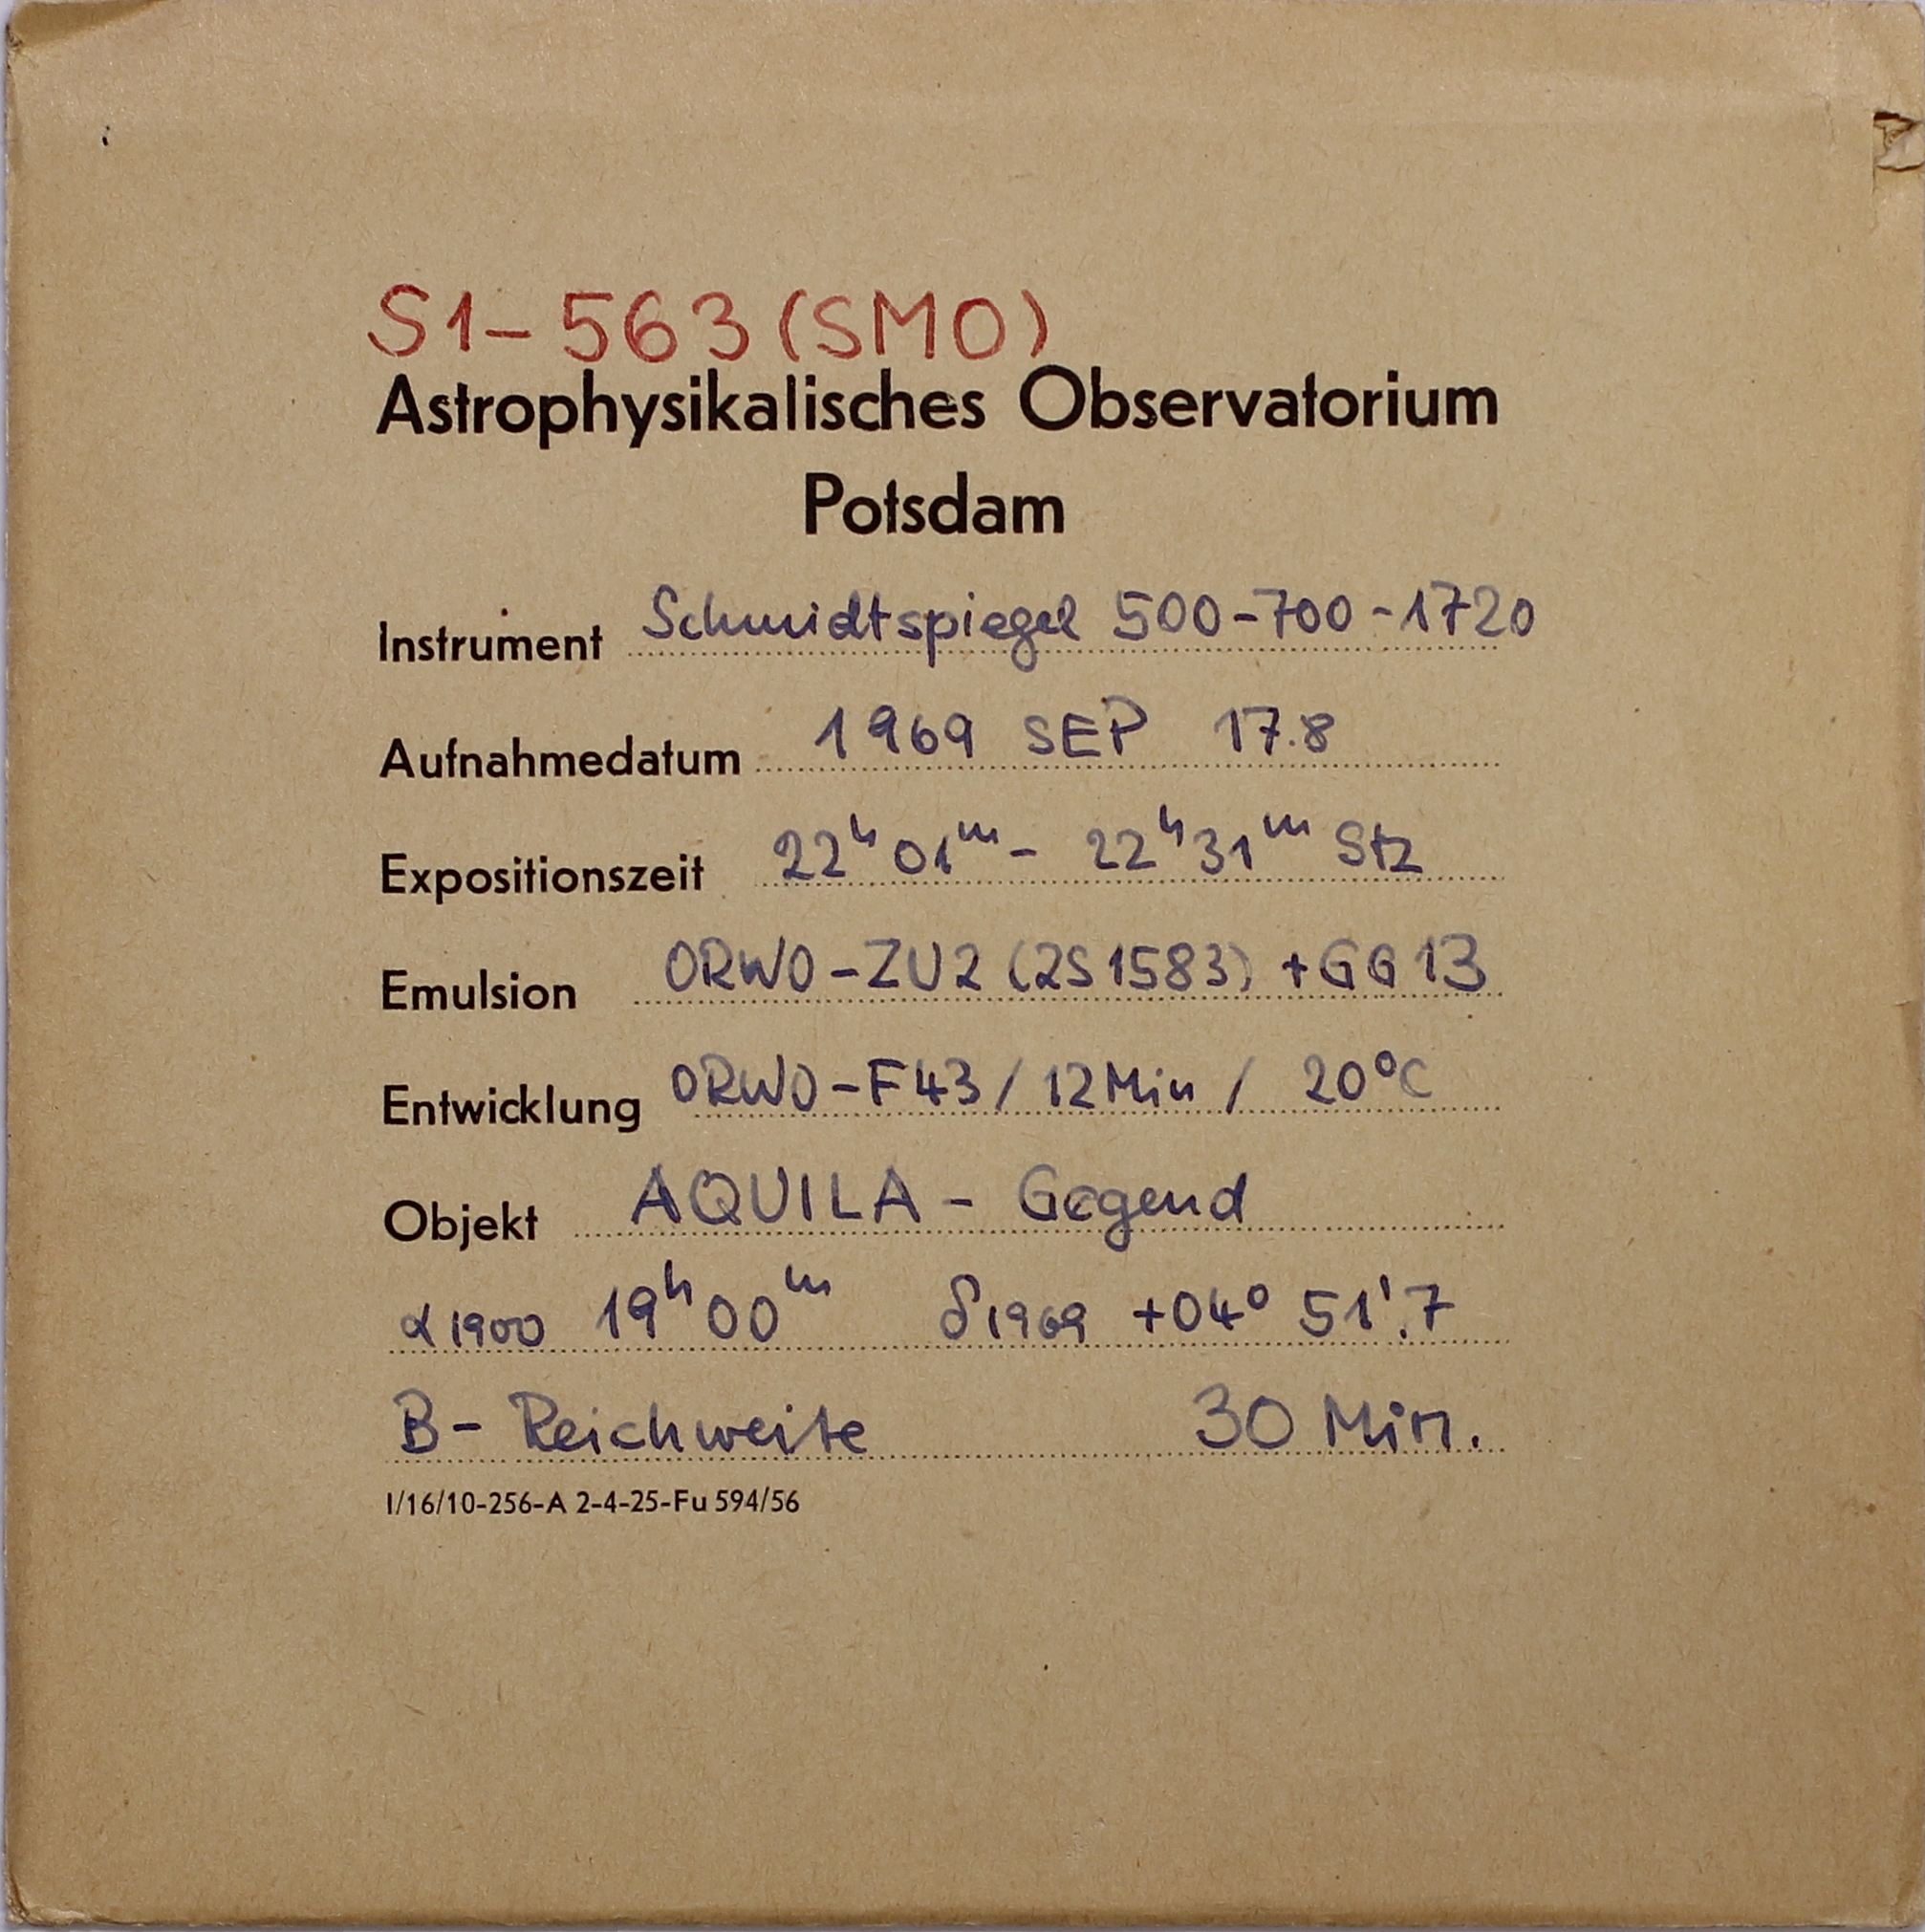 S1-563 (SMO)
Astrophysikalisches Observatorium
Potsdam
Instrument Schmidtspiegel 500-700-1720
Aufnahmedatum 1969 SEP 17.8
Expositionszeit 22ʰ01ᵐ - 22ʰ31ᵐ Stz
Emulsion ORWO-ZU2 (2S1583) +GG13
Entwicklung ORWO-F43 / 12Min / 20°C
Objekt AQUILA - Gegend
α1900 19ʰ00ᵐ δ1969 +04° 51'.7
B- Reichweite 30 Min.
I/16/10-256-A 2-4-25-Fu 594/56